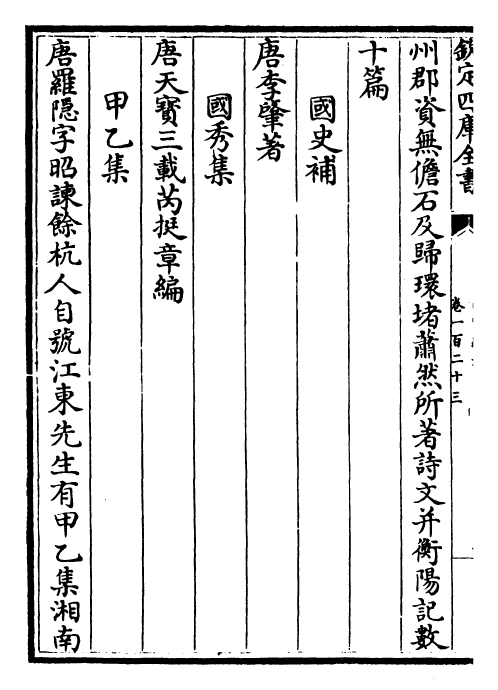 欽定四庫全書
卷一百二十三
州郡資無儋石及歸環堵蕭然所著詩文并衡陽記數
十篇
國史補
唐李肇著
國秀集
唐天寶三載芮挺章編
甲乙集
唐羅隱字昭諫餘杭人自號江東先生有甲乙集湘南